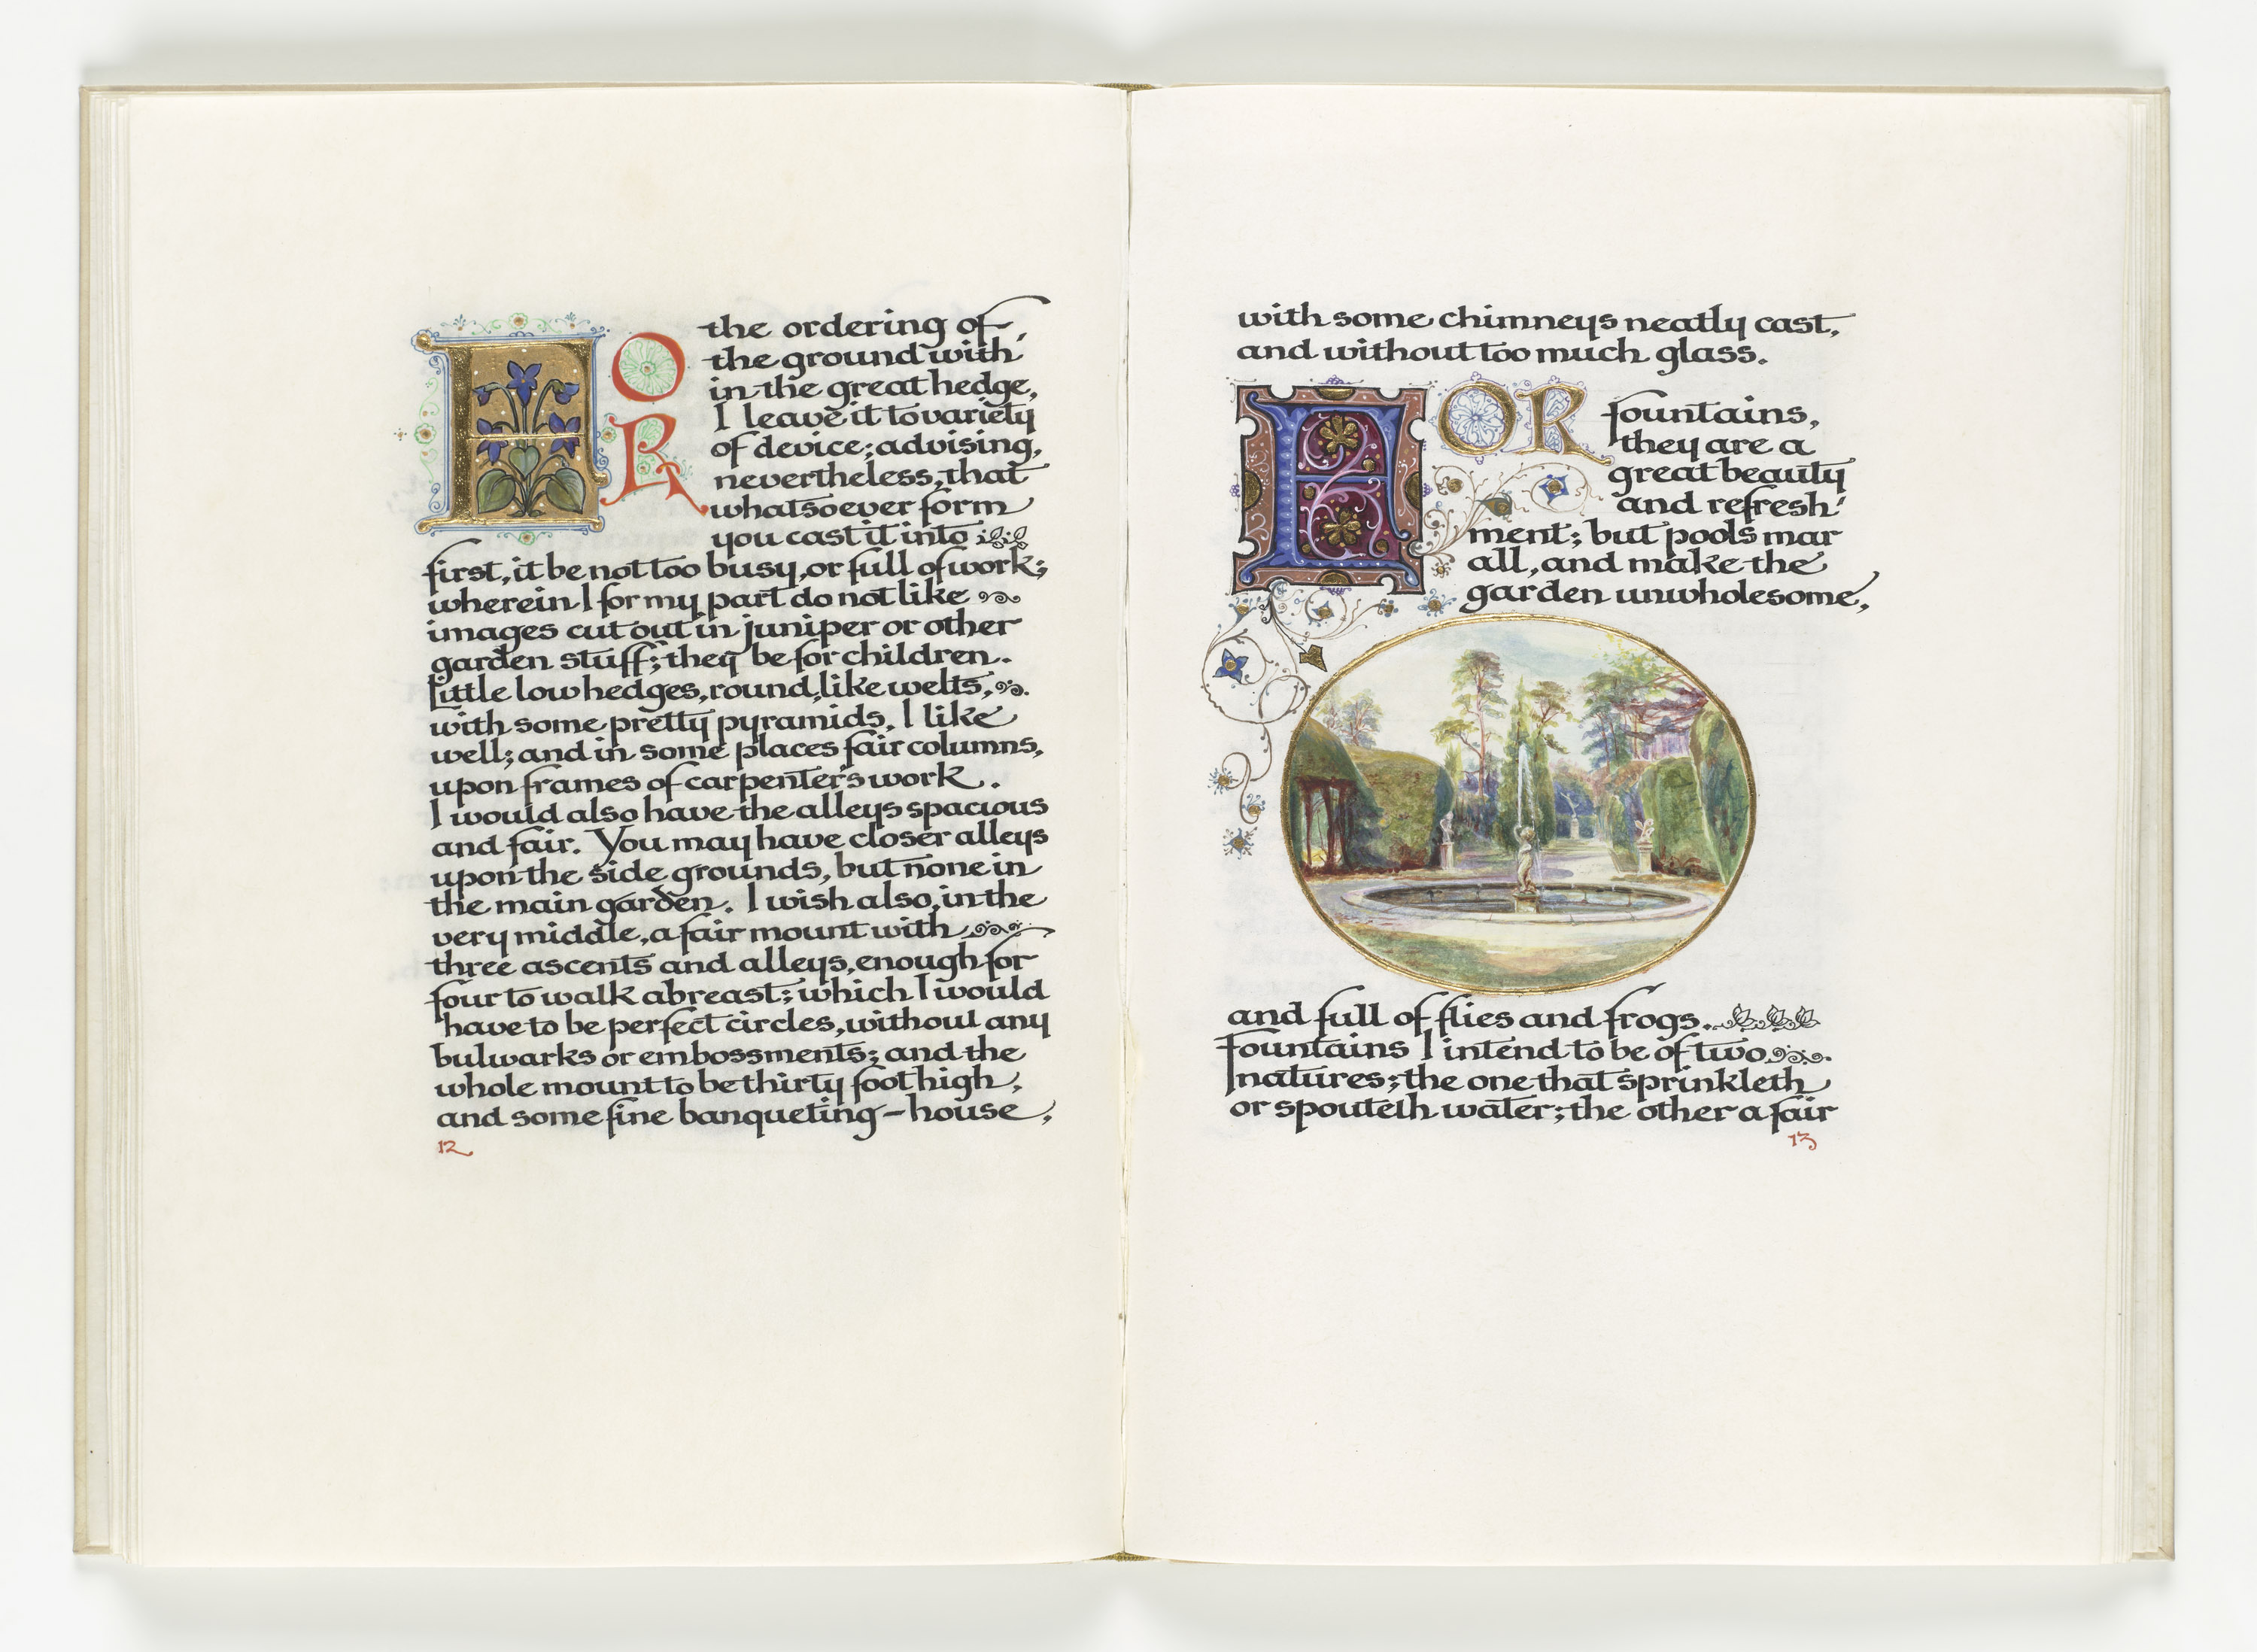 FOR the ordering of
the ground with,
in the great hedge,
I leave it to variety
of device; advising,
nevertheless, that
whatsoever form
you cast it into
first, it be not too busy, or full of work;
wherein I for my part do not like
images cut out in juniper or other
garden stuff; they be for children.
Little low hedges, round, like welts,
with some pretty pyramids, I like
well; and in some places fair columns,
upon frames of carpenter's work.
I would also have the alleys spacious
and fair. You may have closer alleys
upon the side grounds, but none in
the main garden. I wish also, in the
very middle, a fair mount with
three ascents and alleys, enough for
four to walk abreast; which I would
have to be perfect circles, without any
bulwarks or embossments; and the
whole mount to be thirty foot high,
and some fine banqueting-house,
12
with some chimneys neatly cast,
and without too much glass.
FOR fountains,
they are a
great beauty
and refresh-
ment; but pools mar
all, and make the
garden unwholesome,
and full of flies and frogs.
Fountains I intend to be of two
natures; the one that sprinkleth
or spouteth water; the other a fair
13